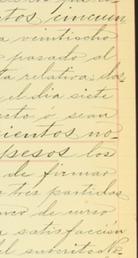 tos cincuen
a veintiocho
pasado al
a relativa, los
el día siete
ó sean
cientos no-
pesos los
de firmar
tres partidas
de curso
a satisfaccion
el suscrito N